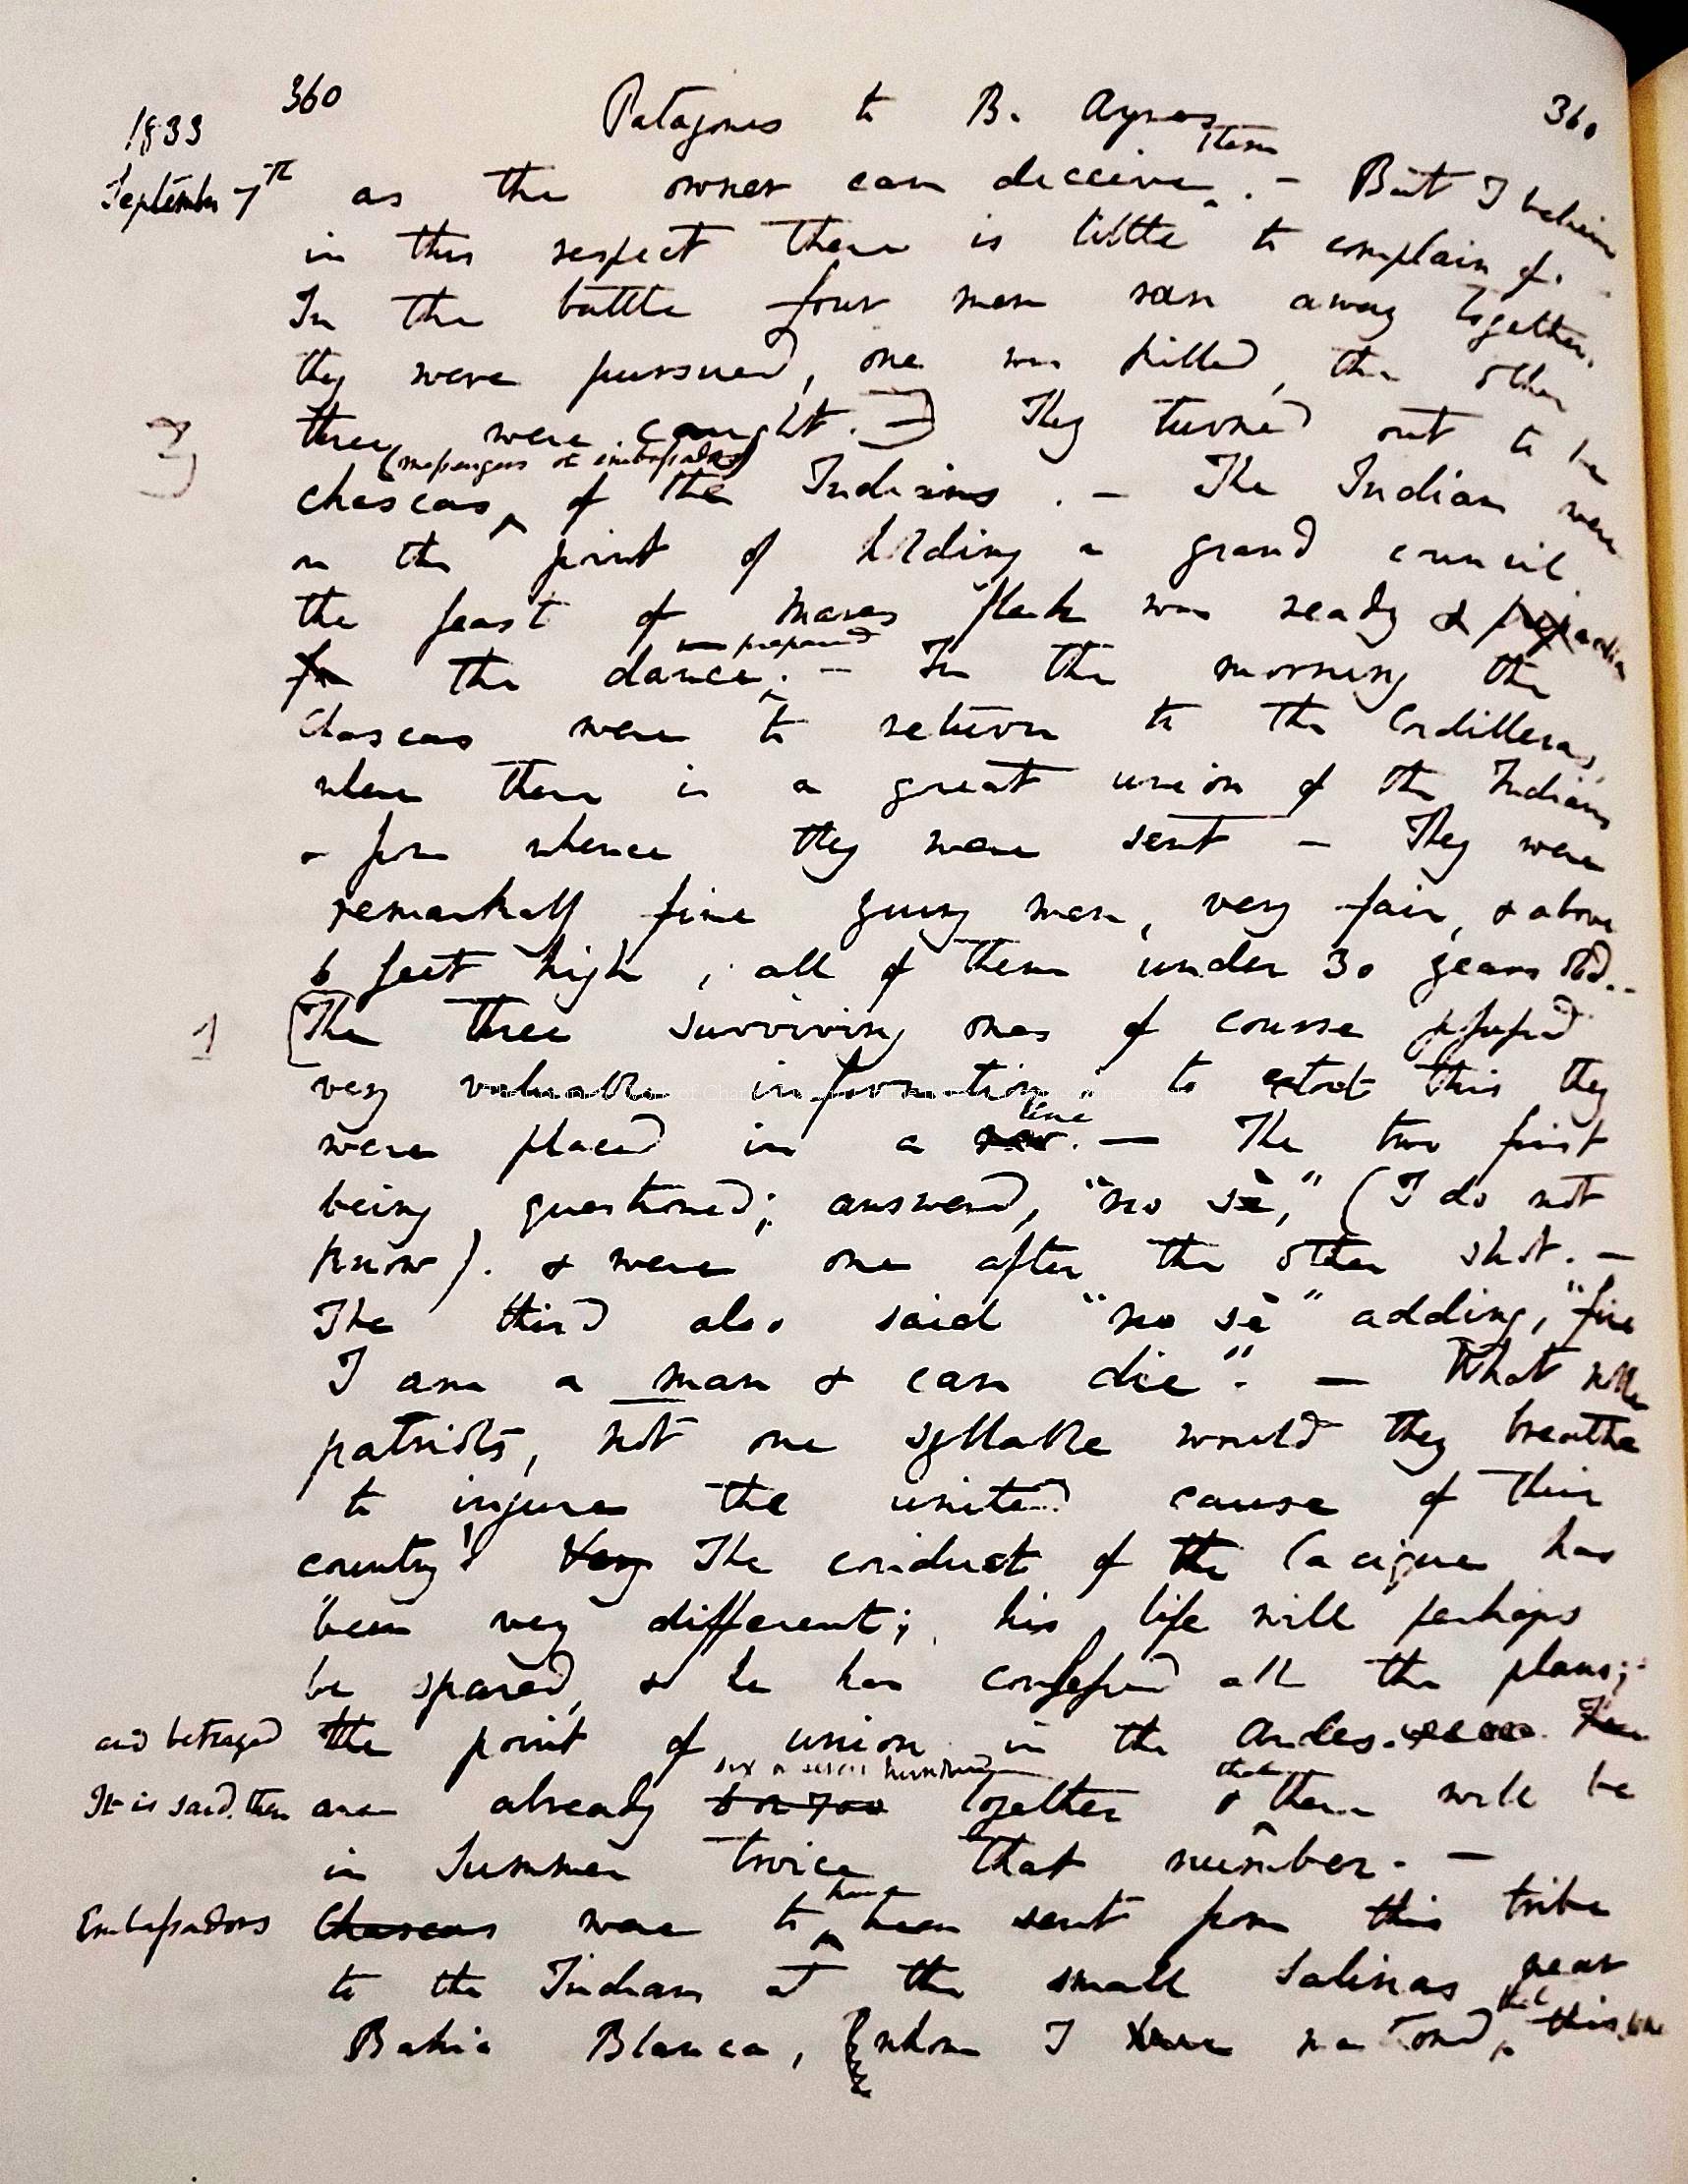 360 Patagones to B. Ayres 360
1833
September 7th as the owner can deceive them. - But I believe
in this respect there is little to complain of.
In the battle four men ran away together,
they were pursued, one was killed, the other
three were caught. They turned out to be
3
(messengers or embassadors)
chascas of the Indians. - The Indians were
on the point of holding a grand council
the feast of mares flesh was ready &
for the dance; was prepared - In the morning the
Chascas were to return to the Cordilleras,
where there is a great union of the Indians
& from whence they were sent - They were
remarkably fine young men, very fair, & above
6 feet high, all of them under 30 years old. -
1 [The three surviving ones of course possessed
very valuable information; to extort this they
were placed in a line. — The two first
being questioned; answered, "no sè," (I do not
know). & were one after the other shot. —
The third also said "no sè" adding, "fire
I am a man & can die". — What noble
patriots, not one syllable would they breathe
to injure the united cause of their
country! Very The conduct of the Cacique has
been very different; his life will perhaps
be spared, & he has confessed all the plans;
and betrayed the point of union in the Andes.
It is said there are already 6 or 700 six or seven hundred together & that there will be
in Summer twice that number. —
Embassadors Chascas were to have been sent from this tribe
to the Indians at the small Salinas near
Bahia Blanca, whom I have mentioned, that this same